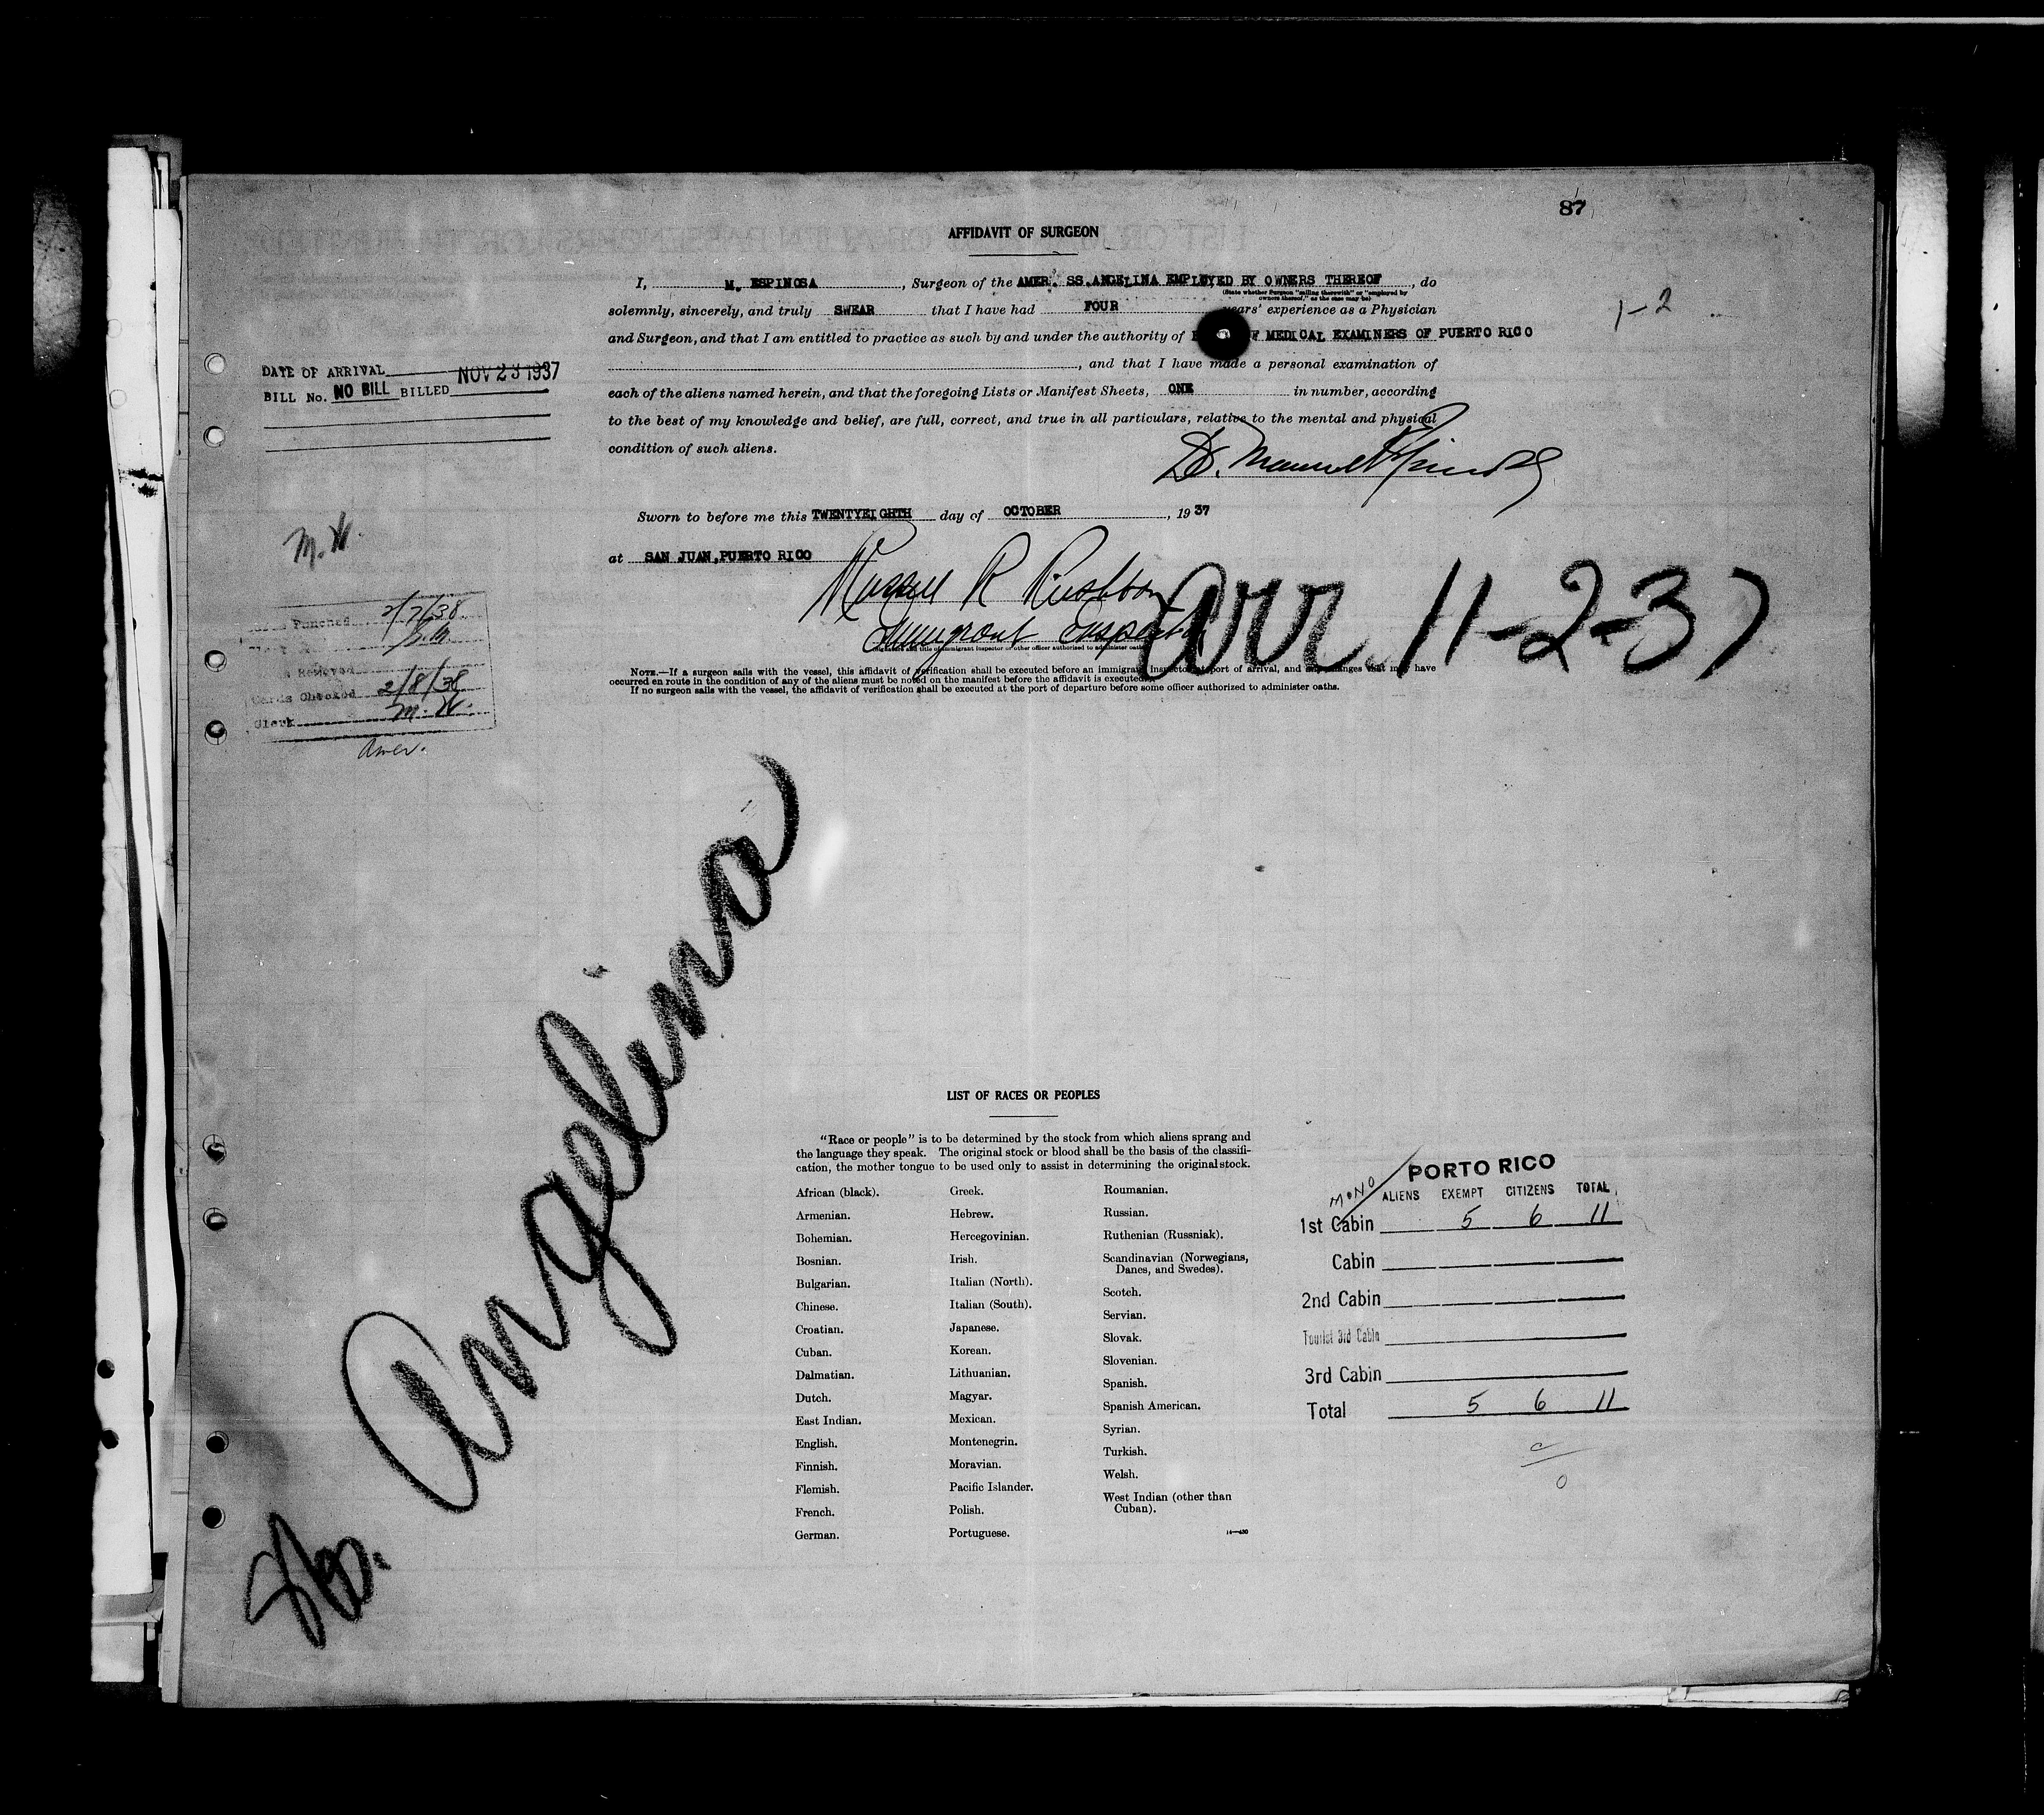 87
AFFIDAVIT OF SURGEON
I, M. ESPINOSA, Surgeon of the AMER. SS.ANGELINA EMPLOYED BY OWNERS THEREOF, do
(State whether Surgeon "sailing therewith" or "employed by
owners thereof," as the case may be)
solemnly, sincerely, and truly SWEAR that I have had FOUR years' experience as a Physician
1-2
and Surgeon, and that I am entitled to practice as such by and under the authority of MEDICAL EXAMINERS OF PUERTO RICO
, and that I have made a personal examination of
each of the aliens named herein, and that the foregoing Lists or Manifest Sheets, ONE in number, according
to the best of my knowledge and belief, are full, correct, and true in all particulars, relative to the mental and physical
condition of such aliens.
DATE OF ARRIVAL NOV 23 1937
BILL No. NO BILL BILLED
Dr. Manuel Espinosa
Sworn to before me this TWENTYEIGHTH day of OCTOBER, 19 37
at SAN JUAN, PUERTO RICO
Russell R
Immigrant Inspector
arr. 11-2-37
NOTE.—If a surgeon sails with the vessel, this affidavit of verification shall be executed before an immigrant inspector at port of arrival, and any changes that may have
occurred en route in the condition of any of the aliens must be noted on the manifest before the affidavit is executed.
If no surgeon sails with the vessel, the affidavit of verification shall be executed at the port of departure before some officer authorized to administer oaths.
M.W.
Punched 2/7/38
Removed
Cards Checked 2/8/38
Clerk M.W.
Amer.
Angelina
LIST OF RACES OR PEOPLES
"Race or people" is to be determined by the stock from which aliens sprang and
the language they speak. The original stock or blood shall be the basis of the classifi-
cation, the mother tongue to be used only to assist in determining the original stock.
African (black).
Armenian.
Bohemian.
Bosnian.
Bulgarian.
Chinese.
Croatian.
Cuban.
Dalmatian.
Dutch.
East Indian.
English.
Finnish.
Flemish.
French.
German.
Greek.
Hebrew.
Hercegovinian.
Irish.
Italian (North).
Italian (South).
Japanese.
Korean.
Lithuanian.
Magyar.
Mexican.
Montenegrin.
Moravian.
Pacific Islander.
Polish.
Portuguese.
Roumanian.
Russian.
Ruthenian (Russniak).
Scandinavian (Norwegians,
Danes, and Swedes).
Scotch.
Servian.
Slovak.
Slovenian.
Spanish.
Spanish American.
Syrian.
Turkish.
Welsh.
West Indian (other than
Cuban).
PORTO RICO
ALIENS EXEMPT CITIZENS TOTAL
1st Cabin 5 6 11
Cabin
2nd Cabin
Tourist 3rd Cabin
3rd Cabin
Total 5 6 11
0